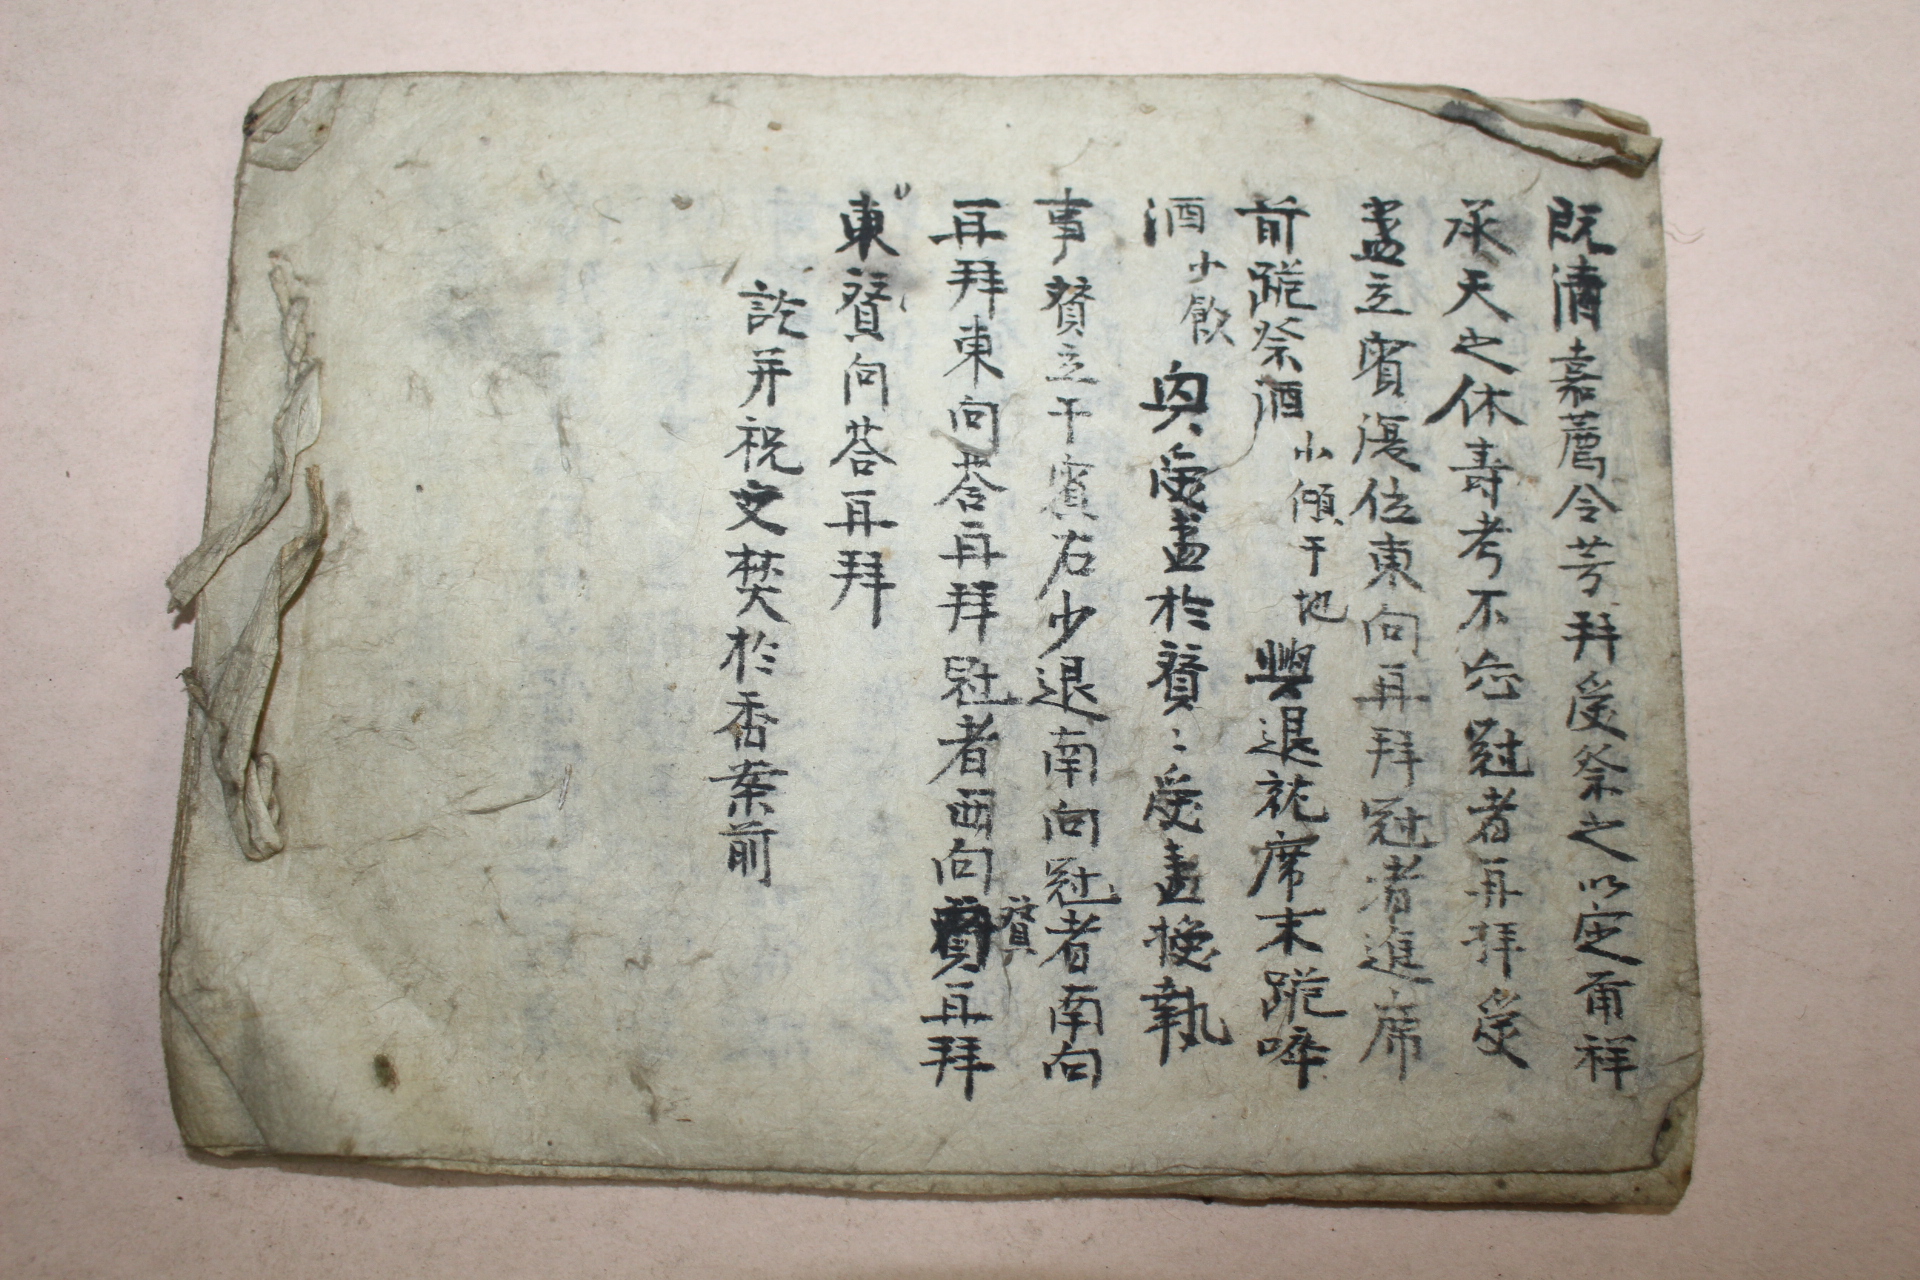 既淸嘉薦令芳拜受祭之以定甭祥
承天之休壽考不忘冠者再拜受
盞立賓復位東向再拜冠者進席
前跪祭酒小傾于地興退就席末跪啐
酒少飮與受盞於賛〻受盞授執
事賛立于賓右少退南向冠者南向
再拜東向荅再拜冠者西向賛再拜
東賛向荅再拜
訖并祝文焚於香案前